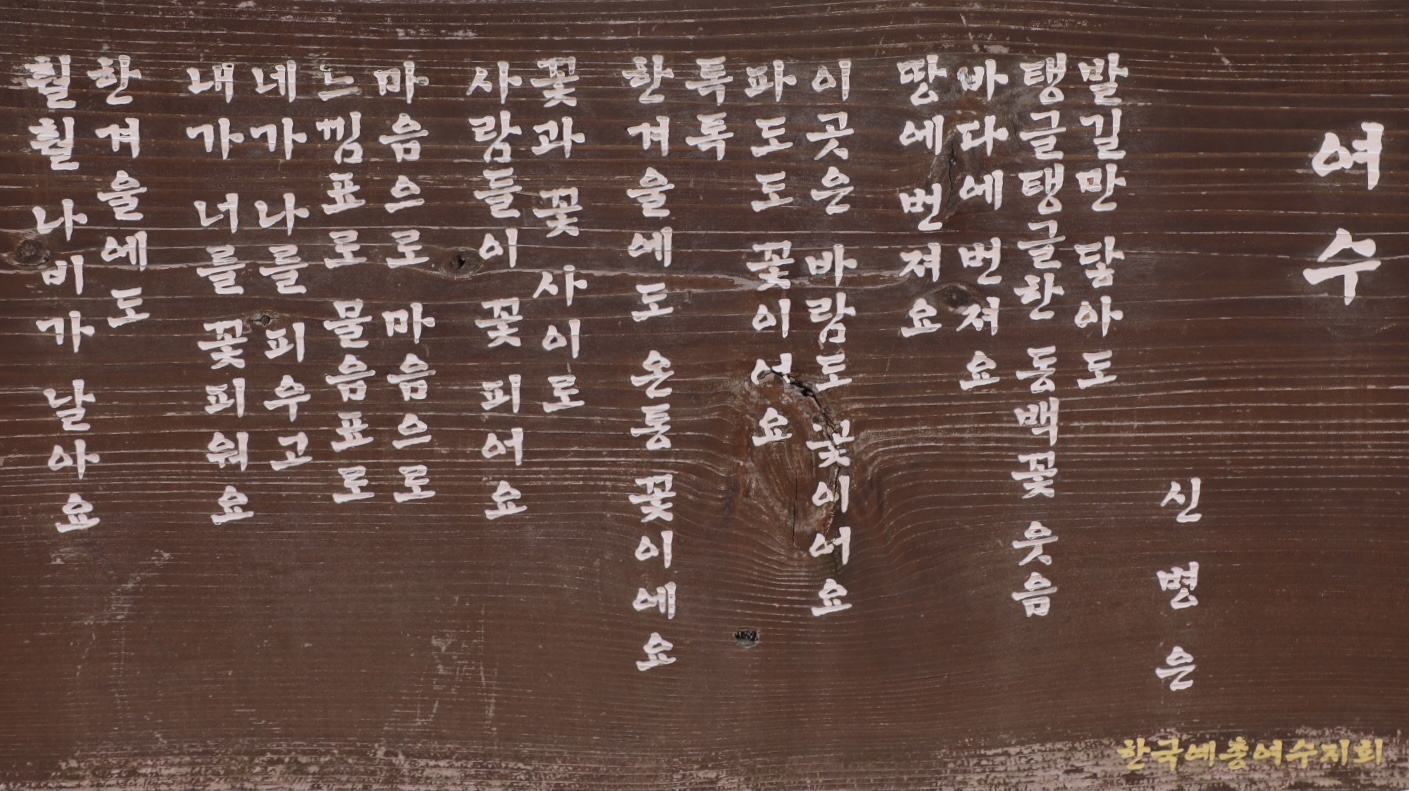 여수
신병은
발길만 닿아도
탱글탱글한 동백꽃 웃음
바다에 번져요
땅에 번져요
이곳은 바람도 꽃이어요
파도도 꽃이여요
톡톡
한겨울에도 온통 꽃이에요
꽃과 꽃 사이로
사람들이 꽃 피어요
마음으로 마음으로
느낌표로 물음표로
네가 나를 피우고
내가 너를 꽃피워요
한겨울에도
훨훨 나비가 날아요
한국예총여수지회